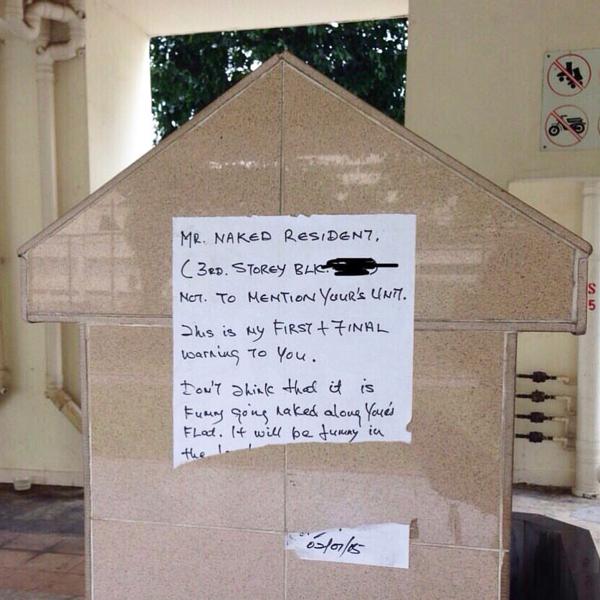 MR. NAKED RESIDENT,
(3RD. STOREY BLK.
NOT. TO MENTION YOUR'S UNIT.
This is My FIRST + FINAL
warning to You.
Don't think that it is
Funny going naked along Your's
Flat. It will be funny in
the
S
5